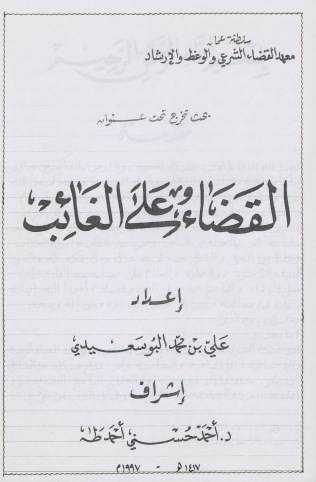 سلطنة عمان
معهد القضاء الشرعي والوعظ والإرشاد
بحث تخرج تحت عنوان
القضاء على الغائب
إعداد
علي بن محمد البوسعيدي
إشراف
د. أحمد حسني أحمد طه
١٤١٧ هـ - ١٩٩٧م